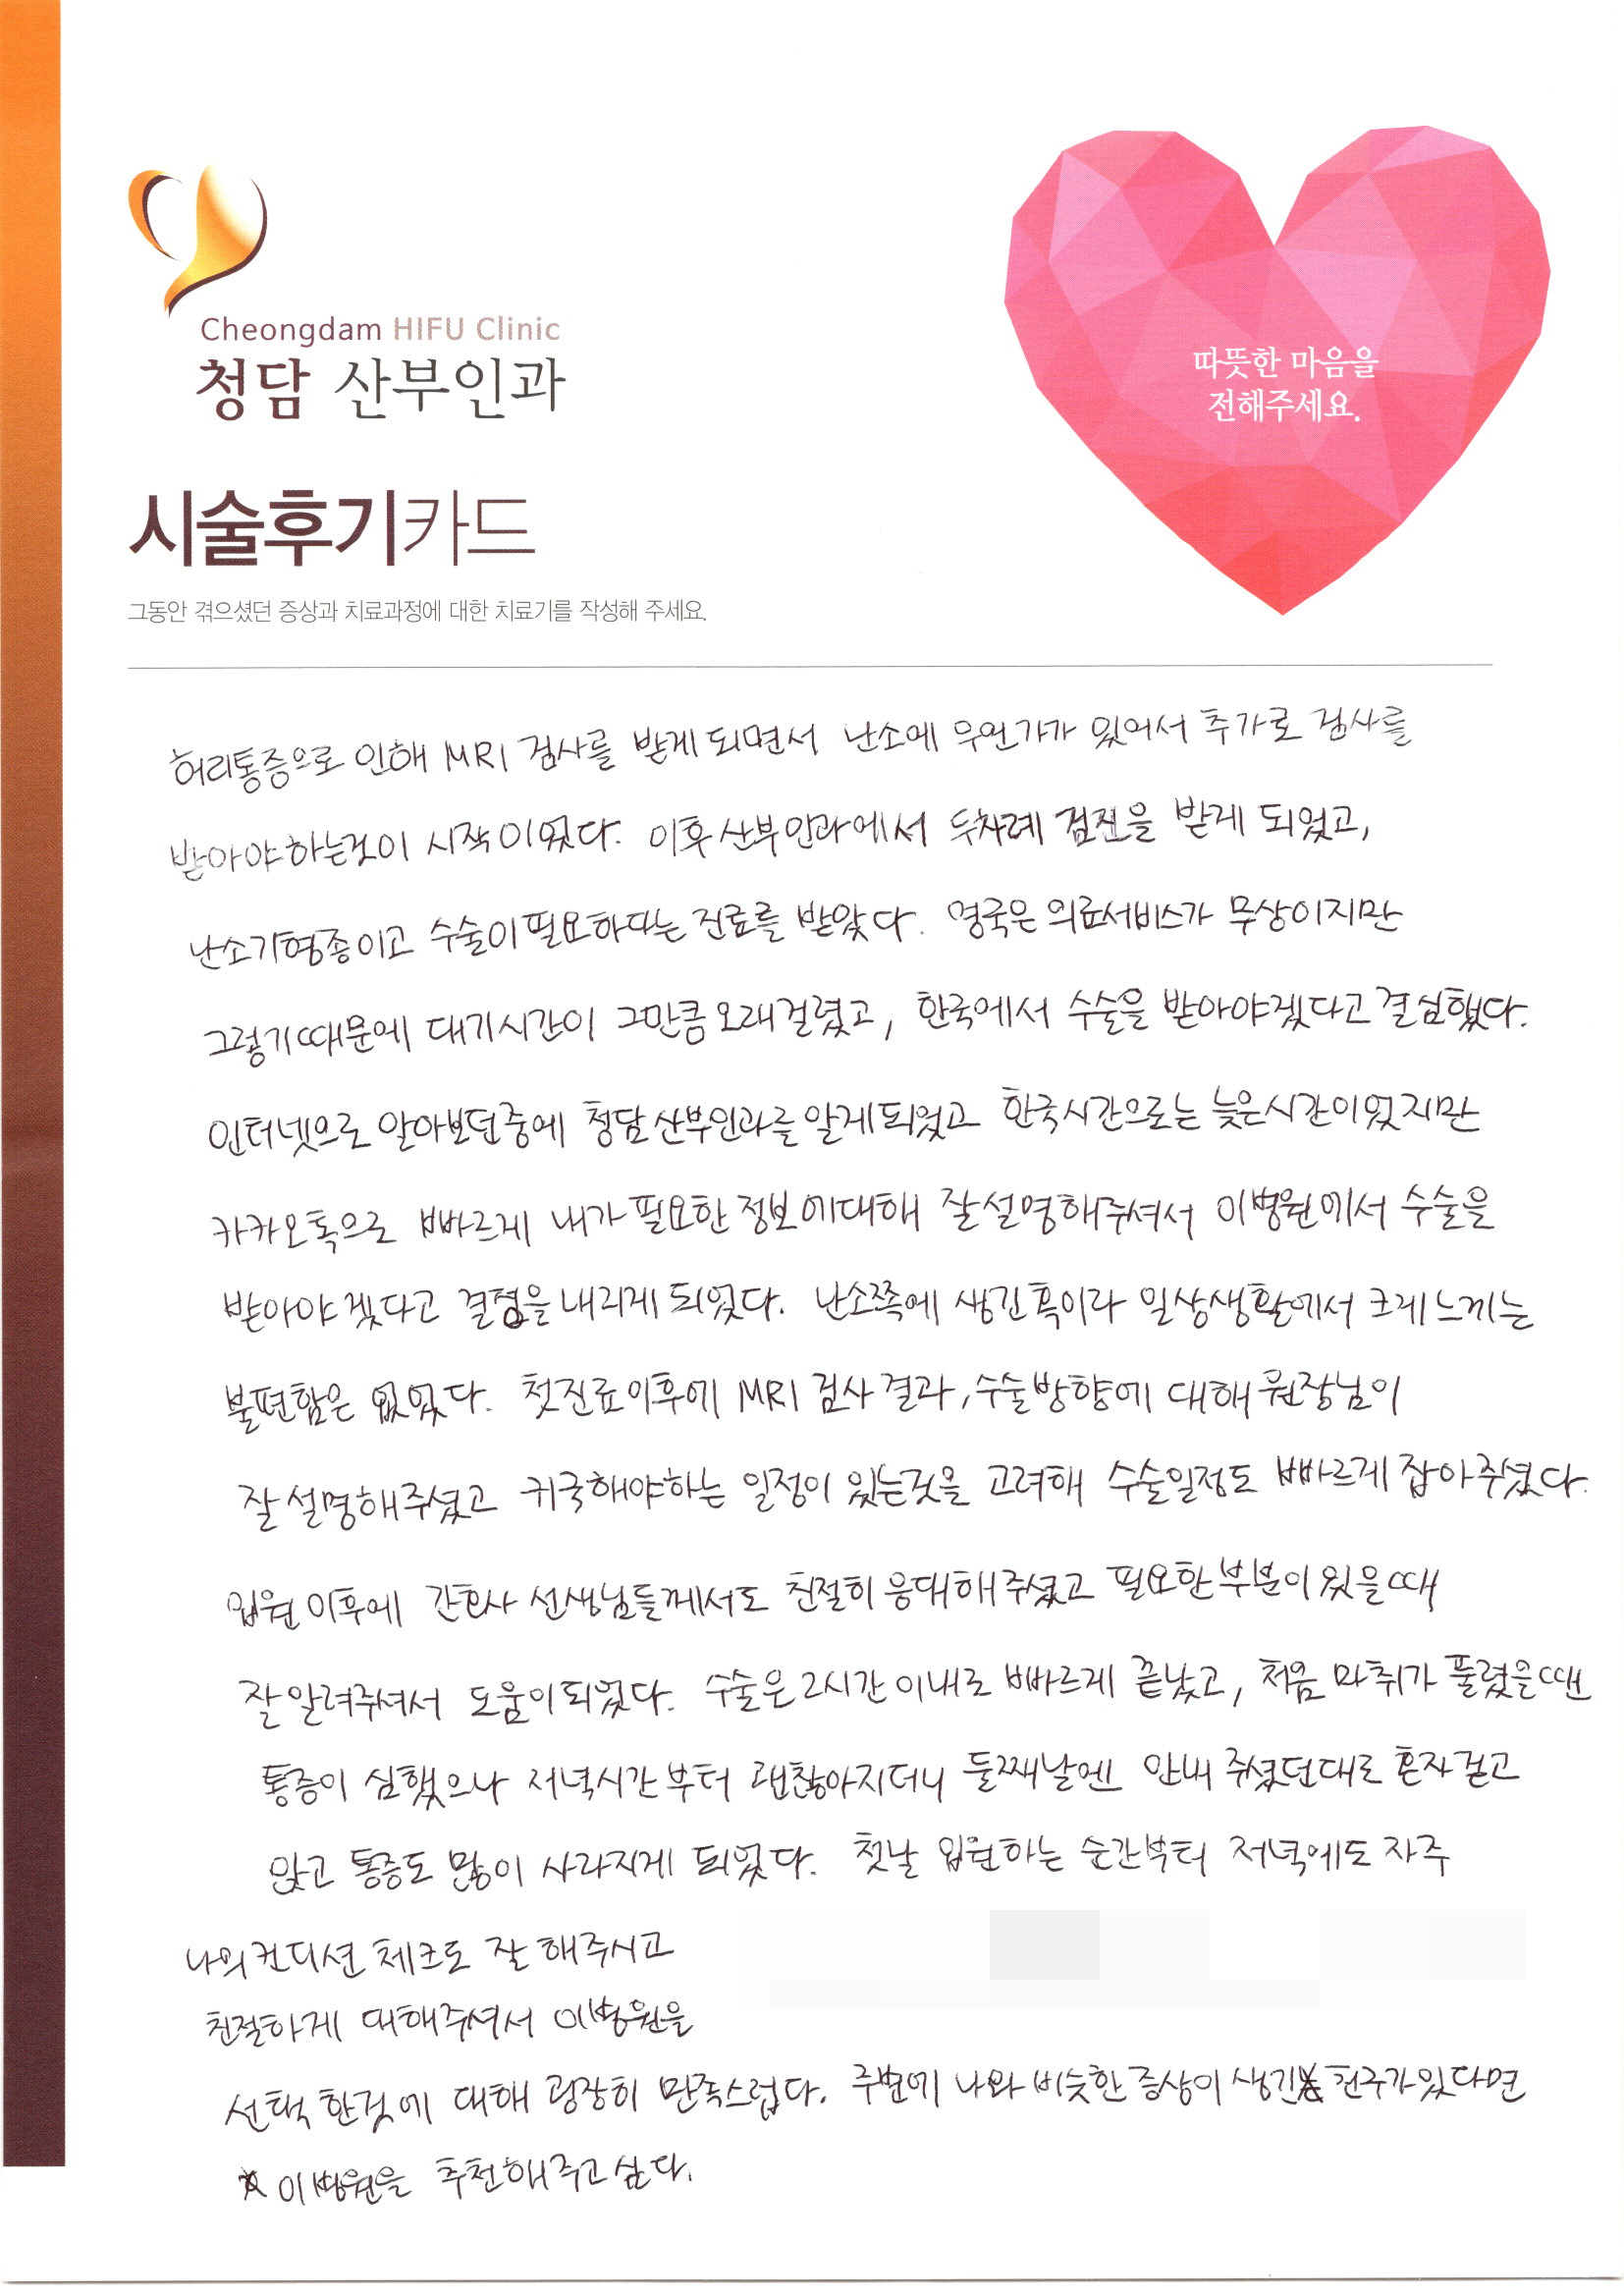 Cheongdam HIFU Clinic
청담 산부인과
따뜻한 마음을
전해주세요.
시술후기카드
그동안 겪으셨던 증상과 치료과정에 대한 치료기를 작성해 주세요.
허리통증으로 인해 MRI 검사를 받게 되면서 난소에 무언가가 있어서 추가로 검사를
받아야하는것이 시작이었다. 이후 산부인과에서 두차례 검진을 받게 되었고,
난소기형종이고 수술이 필요하다는 진료를 받았다. 영국은 의료서비스가 무상이지만
그렇기 때문에 대기시간이 그만큼 오래걸렸고, 한국에서 수술을 받아야겠다고 결심했다.
인터넷으로 알아보던중에 청담산부인과를 알게되었고 한국시간으로는 늦은시간이었지만
카카오톡으로 빠르게 내가 필요한 정보에대해 잘설명해주셔서 이병원에서 수술을
받아야겠다고 결정을 내리게 되었다. 난소쪽에 생긴혹이라 일상생활에서 크게 느끼는
불편함은 없었다. 첫진료이후에 MRI 검사결과, 수술방향에 대해 원장님이
잘 설명해주셨고 귀국해야하는 일정이 있는것을 고려해 수술일정도 빠르게 잡아주셨다.
입원 이후에 간호사 선생님들께서도 친절히 응대해주셨고 필요한 부분이 있을때
잘 알려주셔서 도움이되었다. 수술은 2시간 이내로 빠르게 끝났고, 처음 마취가 풀렸을땐
통증이 심했으나 저녁시간부터 괜찮아지더니 둘째날엔 안내 주셨던대로 혼자 걷고
앉고 통증도 많이 사라지게 되었다. 첫날 입원하는 순간부터 저녁에도 자주
나의 컨디션 체크도 잘 해주시고
친절하게 대해주셔서 이병원을
선택 한것에 대해 굉장히 만족스럽다. 주변에 나와 비슷한 증상이 생긴 친구가있다면
이병원을 추천해주고싶다.